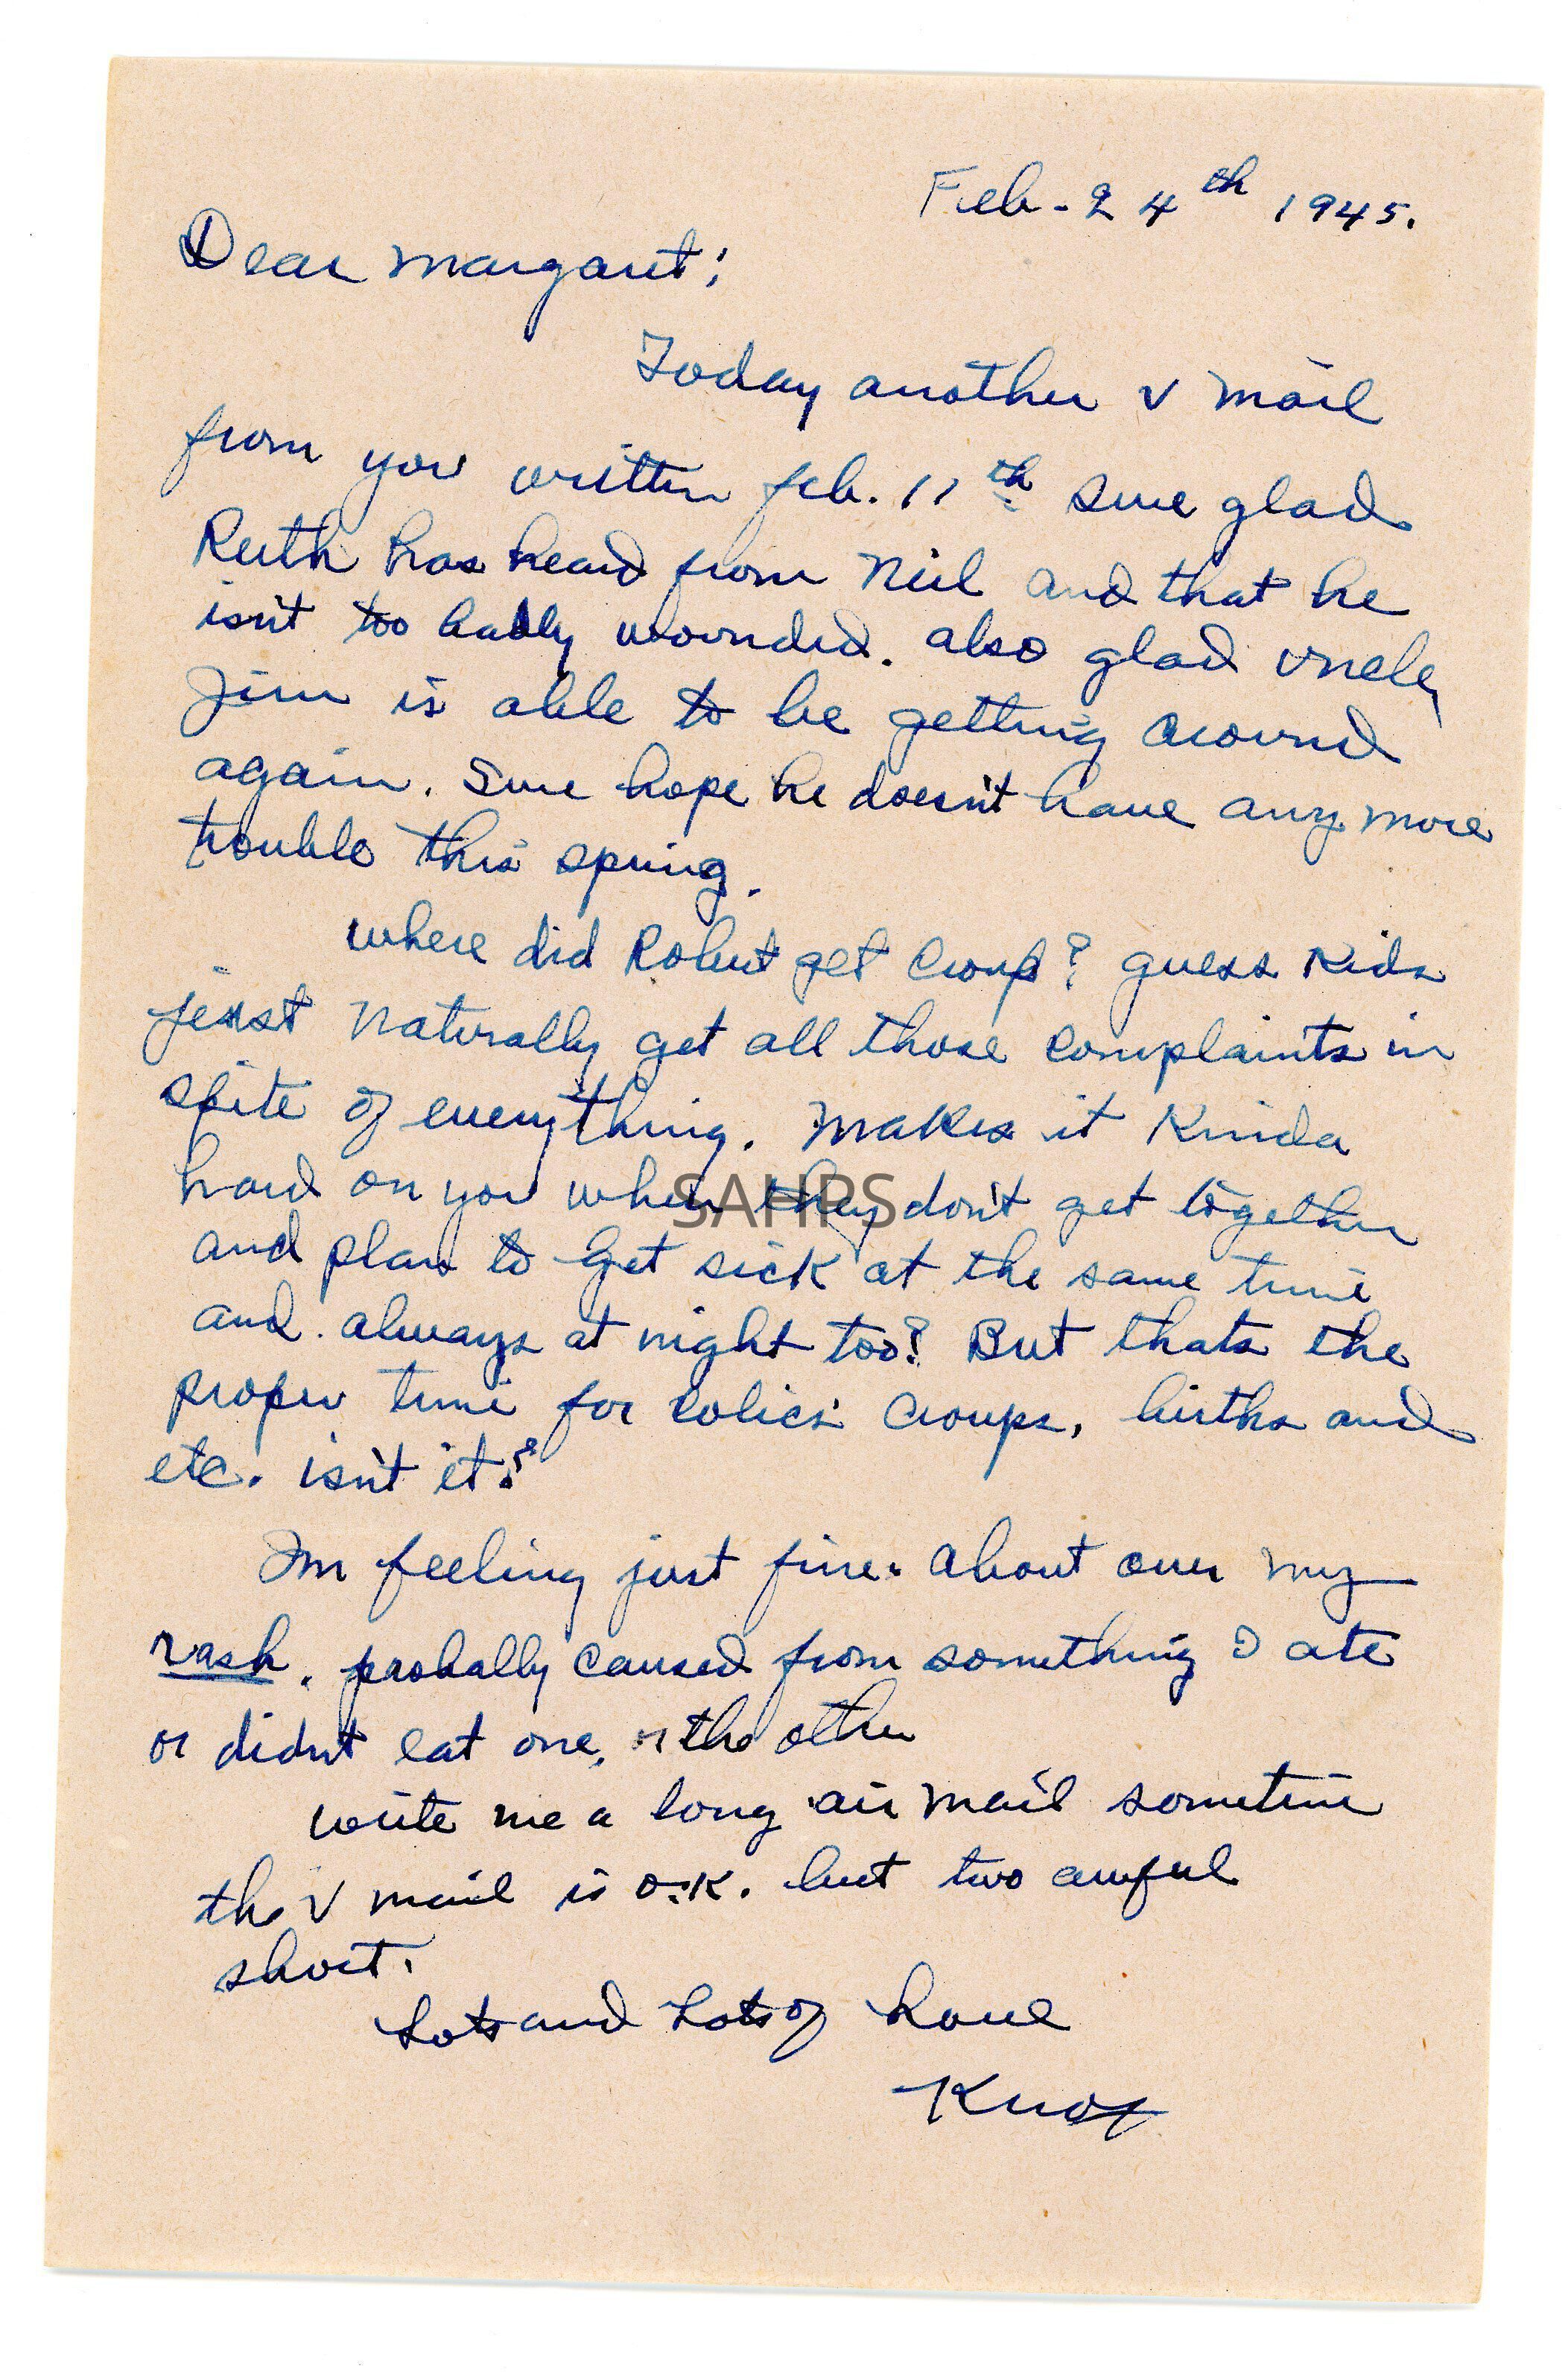 Feb - 24th 1945.
Dear Margaret;
Today another V mail
from you written feb. 11th sure glad
Ruth has heard from Neil and that he
isn't too badly wounded. also glad uncle
Jim is able to be getting around
again. Sure hope he doesn't have any more
trouble this spring.
where did Robert get Croup? guess Kids
just naturally get all those complaints in
spite of everything. makes it Kinda
hard on you when they don't get together
SAHPS
and plan to get sick at the same time
and. always at night too? But thats the
proper time for Colics Croups, births and
etc. isn't it?
Im feeling just fine. about over my
rash. probally caused from something I ate
or didnt eat one. or the other
write me a long air mail sometime
the V mail is O.K. but two awful
short.
Lots and Lots of Love
Knox